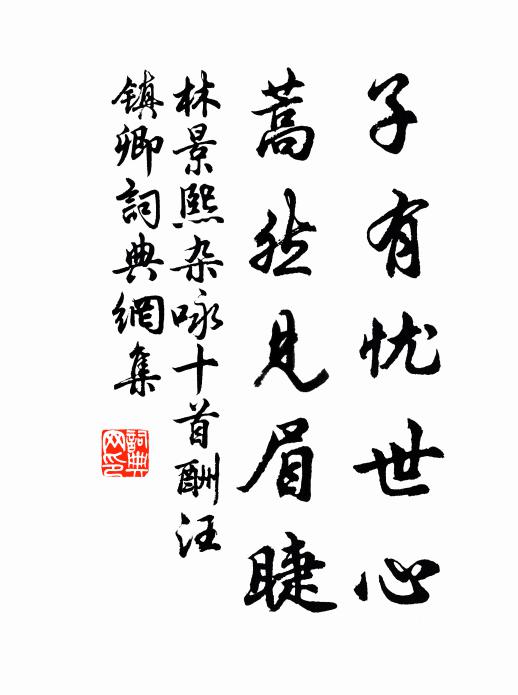 子有忧世心
蒿然见眉睫
林景熙杂咏十首酬汪
镇卿词典網集
詞典網印